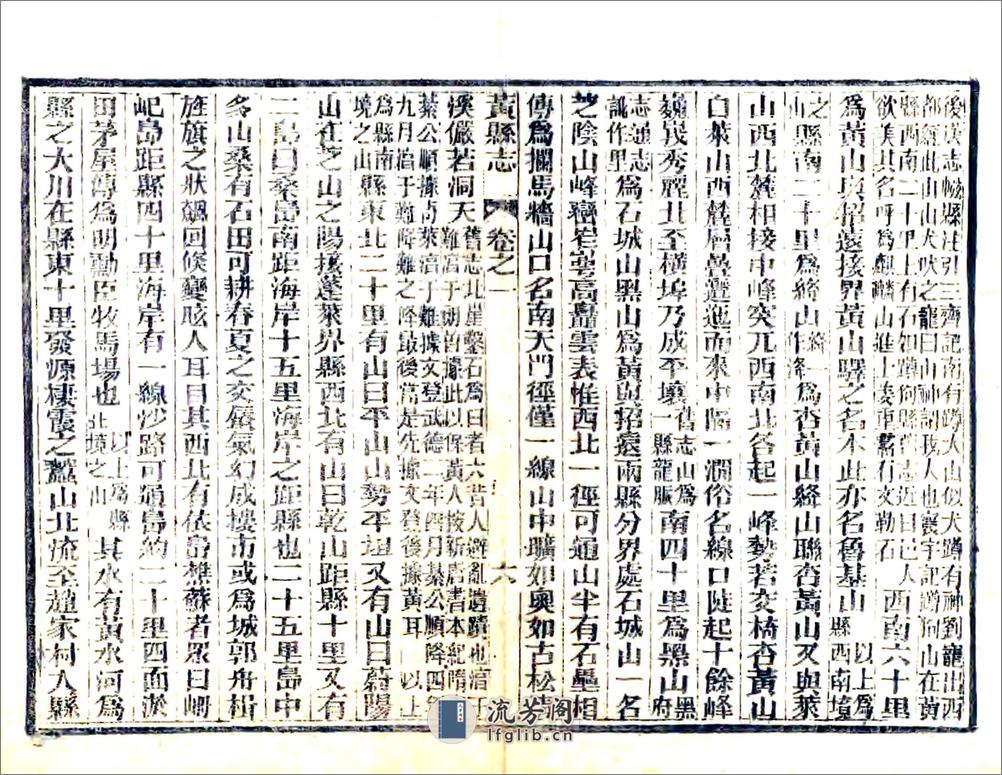 後漢志惤縣注引三齊記南有蹲犬山似犬蹲有神劉寵出西
都經此山山犬吠之寵曰山神訶我人也寰宇記蹲狗山在黃
縣西南二十里上有石如蹲狗縣舊志近日已人
欲美其名呼爲麒麟山進士姜東有文勒石 西南六十里
爲黃山與招遠接界黃山驛之名本此亦名魯基山 以上爲縣西南境
之山 縣南二十里爲絳山 一作絳 爲杏黃山絳山聯杏黃山又與萊
山西北麓相接中峰突兀西南北各起一峰勢若交椅杏黃山
自萊山西麓層疊邐迤而來中隔一澗俗名線口陡起十餘峰
巍峩秀麗北至橫埠乃成平壤 舊志山爲一縣龍脈 南四十里爲黑山 府
志通志黑訛作里 爲石城山黑山爲黃與招遠兩縣分界處石城山一名
芝陰山峰巒崔嵬高矗雲表惟西北一徑可通山半有石壘相
傳爲攔馬牆山口名南天門徑僅一線山中曠如奧如古松淸
黃縣志 卷之一 六
溪儼若洞天 舊志北崖鑿石爲臼者六昔人避亂遺蹟也淳于
難淳于朗皆據此以保黃人按新唐書本紀隋
綦公順據萊淳于難據文登武德二年四月綦公順降四年
九月淳于難降難之降最後當是先據文登後據黃耳 以上
爲縣南境之山 縣東北二十里有山曰平山山勢平迤又有山曰蔚陽
山在芝山之陽接蓬萊界縣西北有山曰乾山距縣十里又有
二島曰桑島南距海岸十五里海岸之距縣也二十五里島中
多山桑有石田可耕春夏之交蜃氣幻成樓市或爲城郭舟楫
旌旗之狀飄回倏變眩人耳目其西北有依島樵蘇者眾曰㟙
屺島距縣四十里海岸有一線沙路可通島約二十里四面淤
田茅屋傳爲明勳臣牧馬場也 以上爲縣北境之山 其水有黃水河爲
縣之大川在縣東十里發源棲霞之蠶山北流至趙家村入縣
流芳阁
lfglib.cn